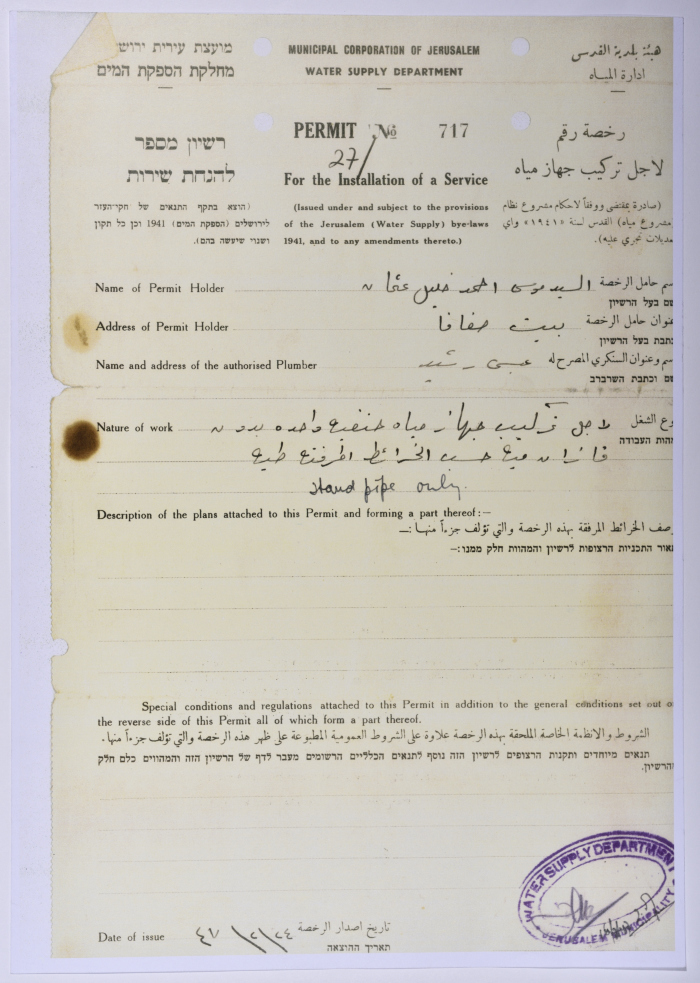 מועצת עירית ירוש
מחלקת הספקת המים
MUNICIPAL CORPORATION OF JERUSALEM
WATER SUPPLY DEPARTMENT
هيئة بلدية القدس
ادارة المياه
רשיון מספר
להנחת שירות
PERMIT No 717
27/
For the Installation of a Service
رخصة رقم
لاجل تركيب جهاز مياه
(הוצא בתקף התנאים של חקי-העזר
לירושלים (הספקת המים) 1941 וכן כל תקון
ושנוי שיעשה בהם).
(Issued under and subject to the provisions
of the Jerusalem (Water Supply) bye-laws
1941, and to any amendments thereto.)
(صادرة بمقتضى ووفقاً لاحكام مصروع نظام
مصروع مياه) القدس لسنة «١٩٤١» واي
تعديلات تجري عليه).
Name of Permit Holder السيد موسى احمد خليل عثمان
سم حامل الرخصة
שם בעל הרשיון
Address of Permit Holder بيت صفافا
عنوان حامل الرخصة
כתבת בעל הרשיון
Name and address of the authorised Plumber عيسى رشيد
سم وعنوان السنكري المصرح له
שם וכתבת השרברב
Nature of work لاجل تركيب جهاز مياه حنفية واحده بدون
وع الشغل
מהות העבודה
حسب الخرائط المرفقة طيه
stand pipe only.
Description of the plans attached to this Permit and forming a part thereof:—
وصف الخرائط المرفقة بهذه الرخصة والتي تؤلف جزءاً منها:—
תאור התכניות הרצופות לרשיון והמהוות חלק ממנו:—
Special conditions and regulations attached to this Permit in addition to the general conditions set out o
the reverse side of this Permit all of which form a part thereof.
الشروط والانظمة الخاصة الملحقة بهذه الرخصة علاوة على الشروط العمومية المطبوعة على ظهر هذه الرخصة والتي تؤلف جزءاً منها.
תנאים מיוחדים ותקנות הרצופים לרשיון הזה נוסף לתנאים הכלליים הרשומים מעבר לדף של הרשיון הזה והמהווים כלם חלק
הרשיון.
WATER SUPPLY DEPARTMENT
JERUSALEM MUNICIPALITY
Date of issue ٤٧/٢/٢٤
تاريخ اصدار الرخصة
תאריך ההוצאה